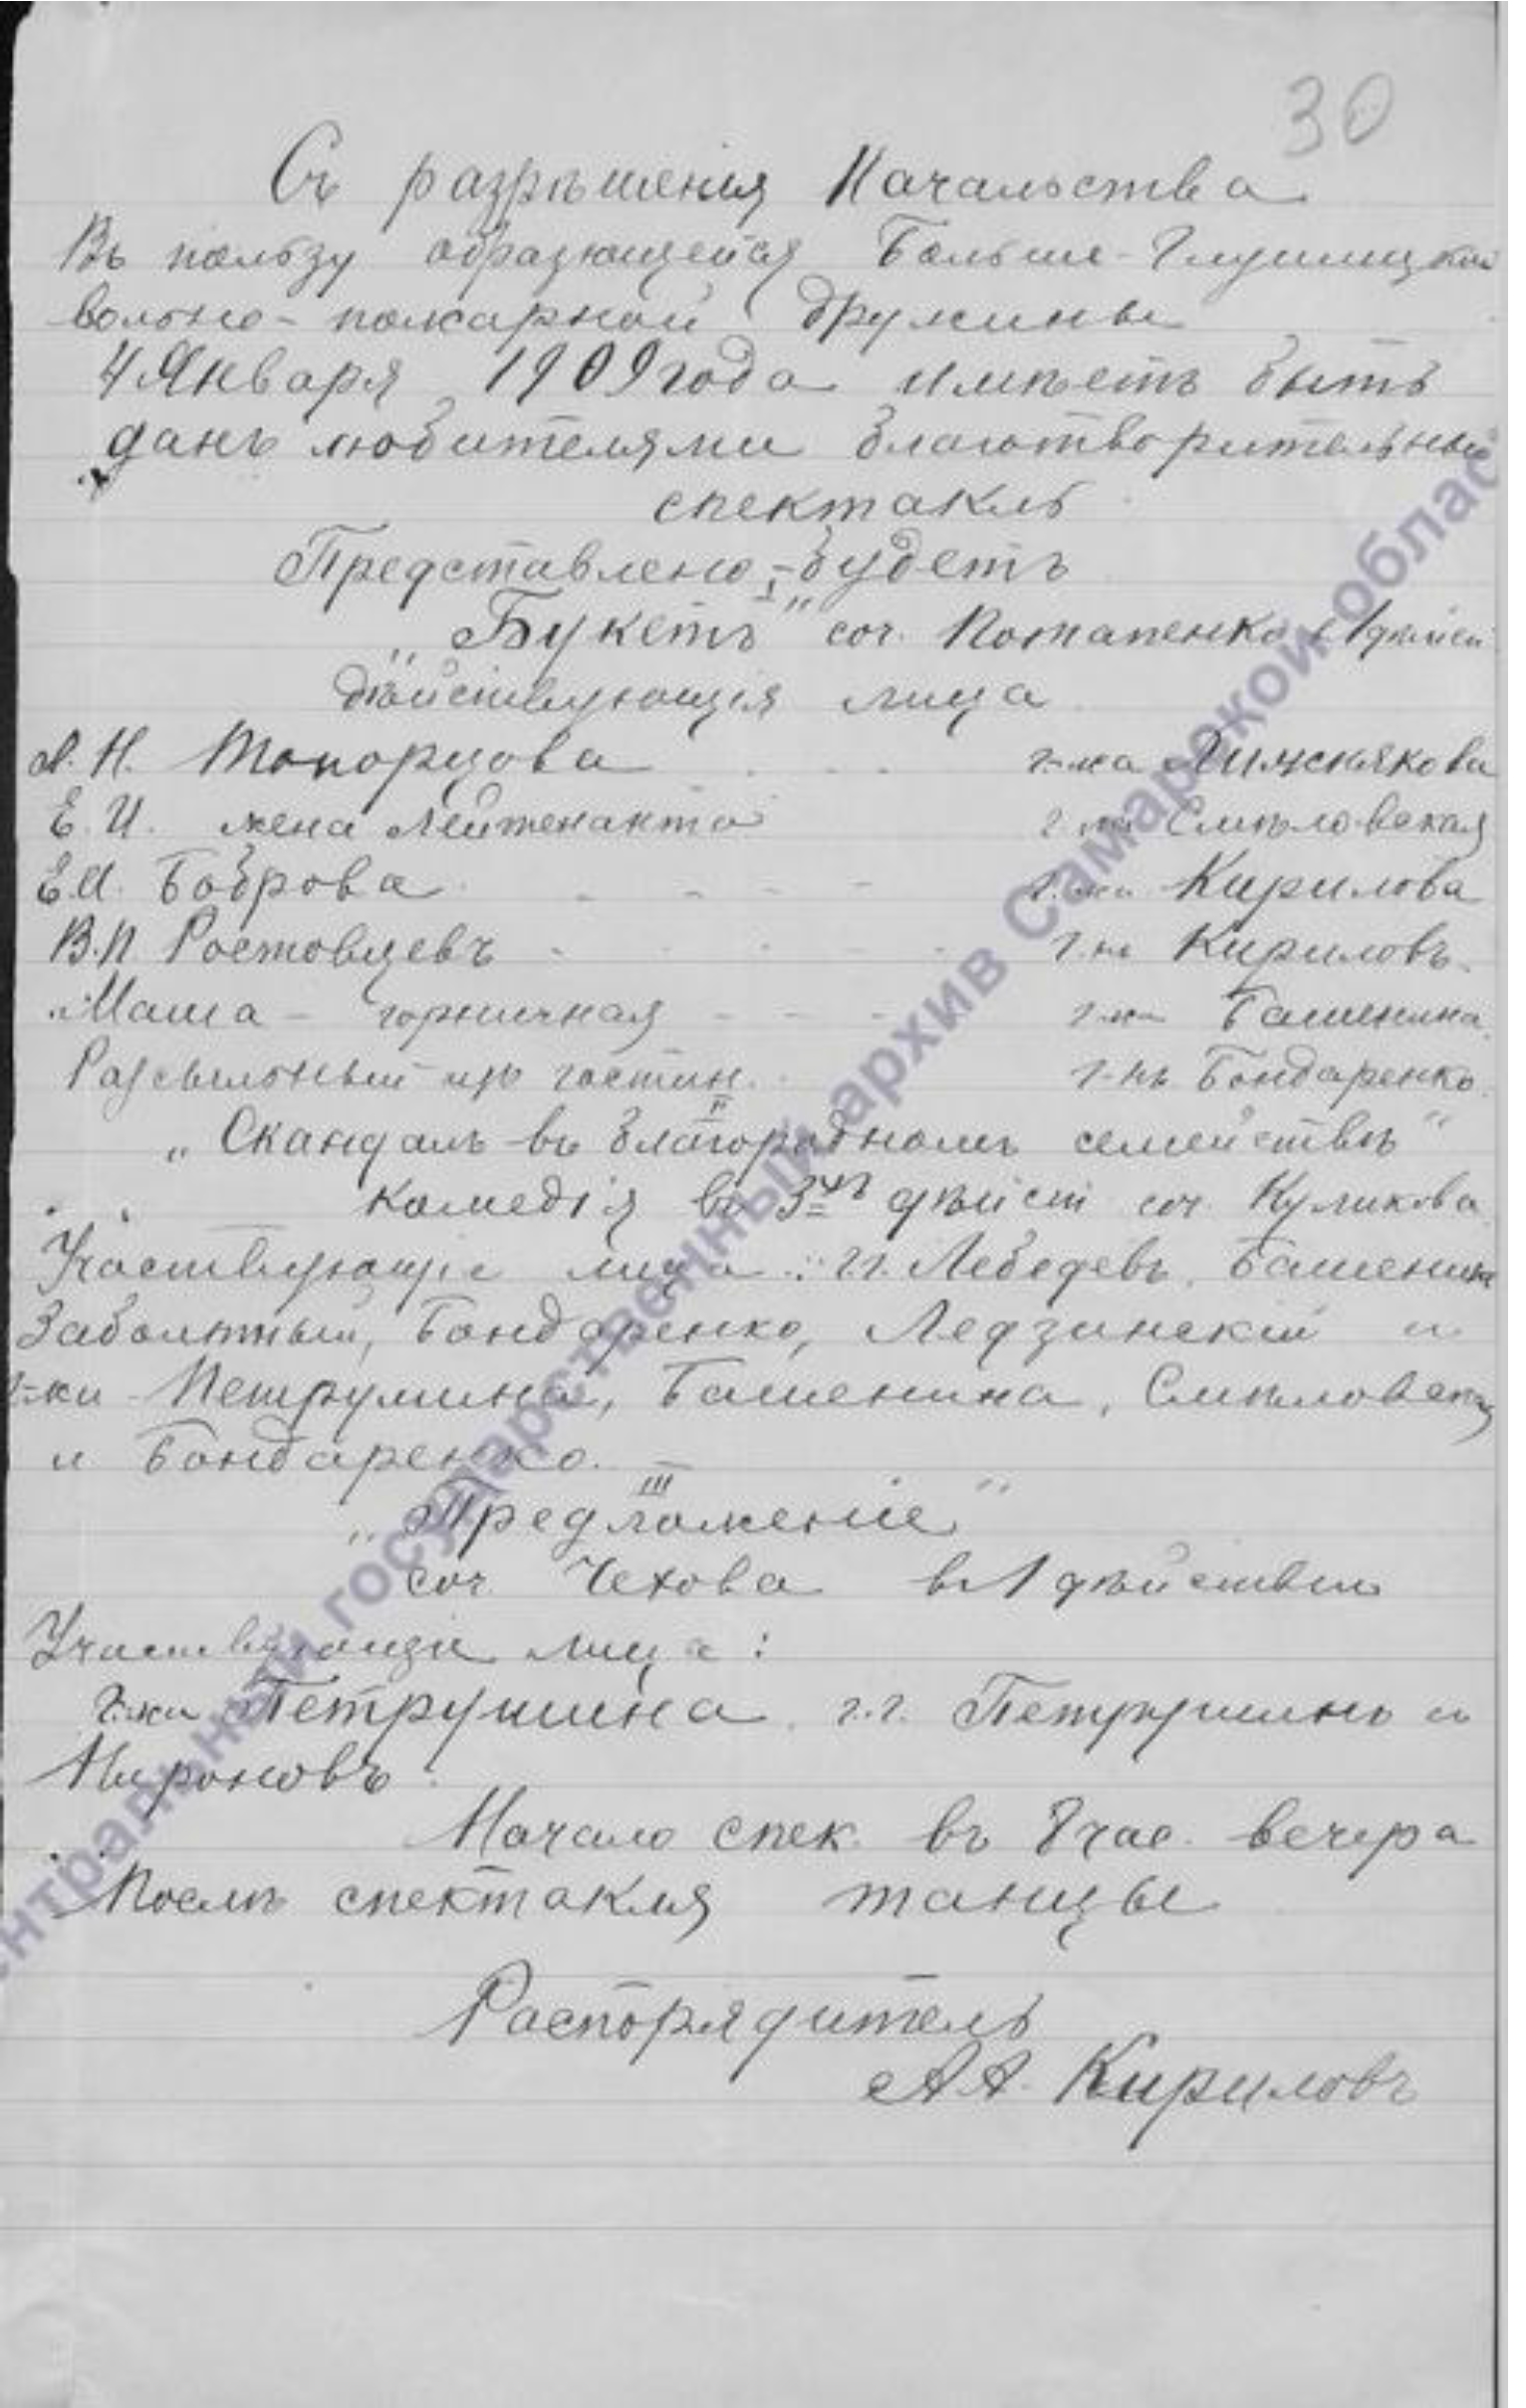 30
Съ разрѣшенія Начальства
Въ пользу образующейся Больше-Глушицкой
вольно-пожарной дружины
4 Января 1909 года имѣетъ быть
данъ любителями благотворительный
спектакль
Представлено будетъ
I
„Букетъ" соч. Потапенко в 1 дѣйст
Дѣйствующія лица
Л. Н. Топорцова г-жа
Е. И. жена Лейтенанта г-жа Смѣловская
Е.И. Боброва г-жа Кирилова
В.П. Ростовцевъ г-нъ Кириловъ
Маша - горничная г-жа Башенина
Разсыльный изъ гостин. г-нъ Бондаренко
II
„Скандалъ въ благородномъ семействѣ"
Комедія въ 3хъ дѣйст соч. Куликова
Участвующіе лица: г.г. Лебедевъ, Башенинъ
Заболотный, Бондаренко, Ледзинскій и
г-жи Петрушина, Башенина, Смѣловская
и Бондаренко.
III
„Предложеніе"
соч Чехова въ 1 дѣйствіи
Участвующіе лица:
г-жа Петрушина, г.г. Петрушинъ и
Мироновъ.
Начало спек. въ 8 час. вечера
Послѣ спектакля танцы
Распорядитель
А А. Кириловъ
Центральный государственный архив Самарской облас